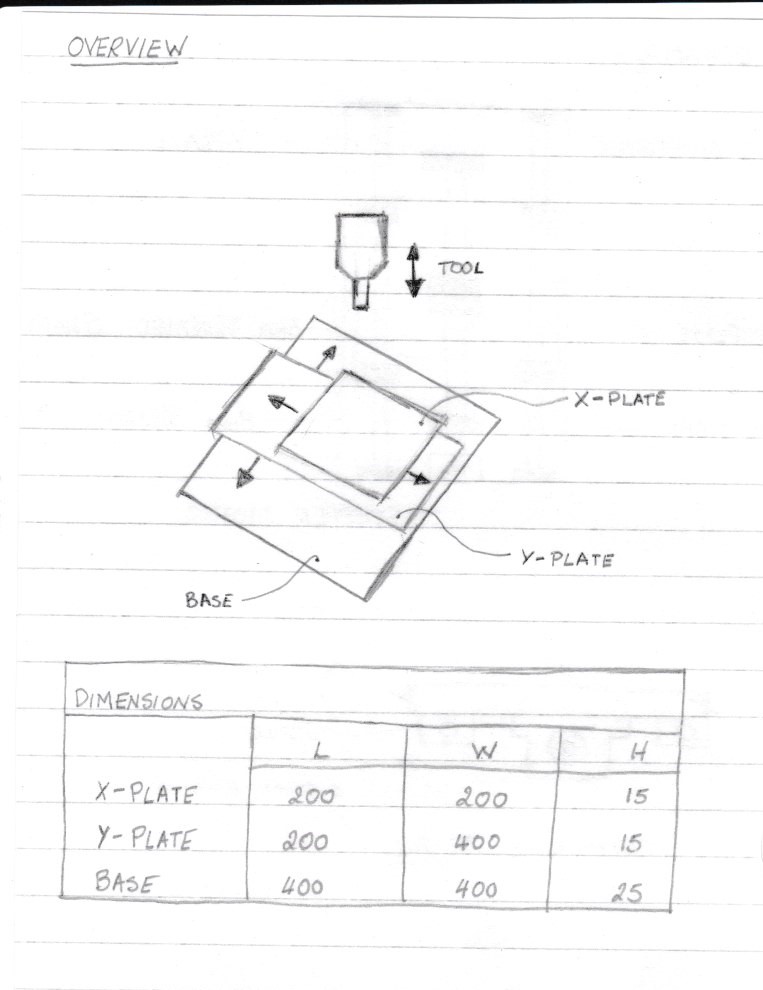 OVERVIEW
TOOL
X-PLATE
Y-PLATE
BASE
DIMENSIONS
L W H
X-PLATE 200 200 15
Y-PLATE 200 400 15
BASE 400 400 25